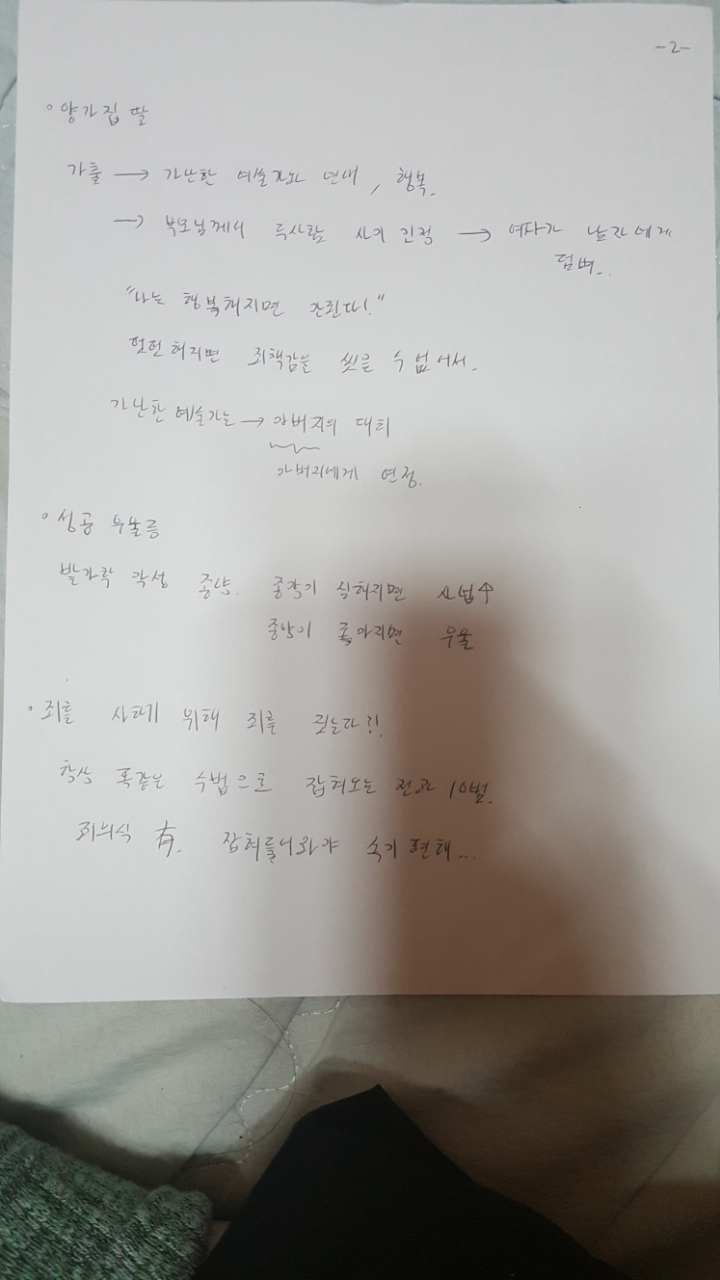 -2-
• 양가집 딸
가출 → 가난한 예술가와 연애, 행복.
→ 부모님께서 두사람 사이 인정 → 여자가 남자에게
덤벼..
"나는 행복해지면 안된다!."
헌헌해지면 죄책감을 씻을 수 없어서.
가난한 예술가는 → 아버지의 대리
아버지에게 연정.
• 성공 우울증
발가락 각성 종양. 종양이 심해지면 신념↑
종양이 좋아지면 우울
• 죄를 사하기 위해 죄를 짓는다?!.
항상 똑같은 수법으로 잡혀오는 전과 10범.
죄의식 有. 잡혀들어와야 속이 편해...